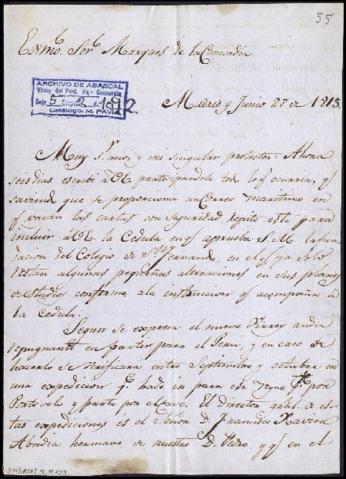 55
Exmo. Sor. Marques de la Concordia
ARCHIVO DE ABASCAL
Virrey del Perú. Mq. Concordia
Caja 5 Carpeta 2 Nº 12
Catálogo: M. PAVÍA
Madrid y Junio 27 de 1815.
Muy Sr. mio, y mi singular protector. Ahora
seis dias escribi a VE participandole todo lo ocurrido, y
sabiendo que se proporciona un Correo maritimo en
q. vayan las cartas con seguridad repito esta para
incluir a VE la Cedula en q. aprueba S.M. la fun
dacion del Colegio de Sn. Fernando, en el q. solo
notan algunas pequeñas alteraciones en sus planes
de estudios conforme a la instruccion q. acompaña a
la Cedula.
Segun se expresa el nuevo Virrey anda
repugnante en partir para el Perú, y en caso de
hacerlo se verificara entre Septiembre y octubre en
una expedicion q. hade ir para ese Reyno pte. por
Portovelo y parte por el cavo. El Director gral. de es
tas expediciones es el Señor D. Francisco Xavier
Abadia hermano de nuestro D. Pedro, y q. en el